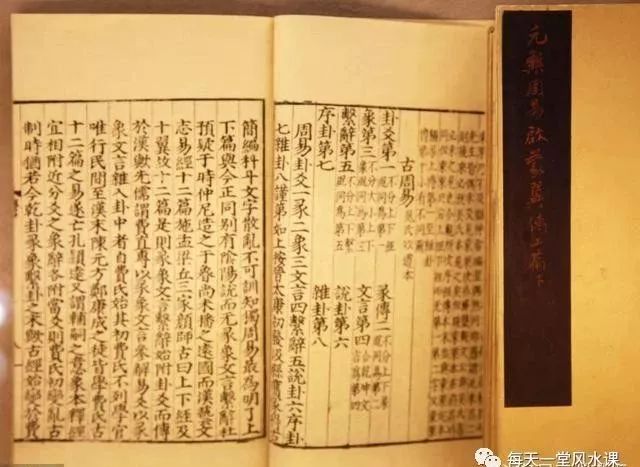 元槧周易啟蒙翼傳上篇下
古周易
卦爻第一 不分上下經 彖傳二
象第三 不分大小上下 文言第四
繫辭第五 不分上下 說卦第六
序卦第七 雜卦第八
周易卦爻一彖二象三文言四繫辭五說卦六序卦
七雜卦八謹第如上按晉太康初發汲縣舊
簡編科斗文字散亂不可訓知獨周易最為明了上
下篇與今正同別有陰陽說而无彖象文言繫辭杜
預疑于時仲尼造之于魯尚未播之遠國而漢藝文
志易經十二篇施孟梁丘三家顏師古曰上下經及
十翼故十二篇是則彖象文言繫辭始附卦爻而傳
於漢歟先儒謂費直專以彖象文言參解易爻以彖
象文言雜入卦中者自費氏始其初費氏不列學官
唯行民間至漢末陳元方鄭康成之徒皆學費氏古
十二篇之易遂亡孔穎達又謂輔嗣之意象本釋經
宜相附近分爻之象辭各附當爻則費氏初變亂古
制時猶若今乾卦彖象繫卦之末歟古經始變於費
每天一堂风水课